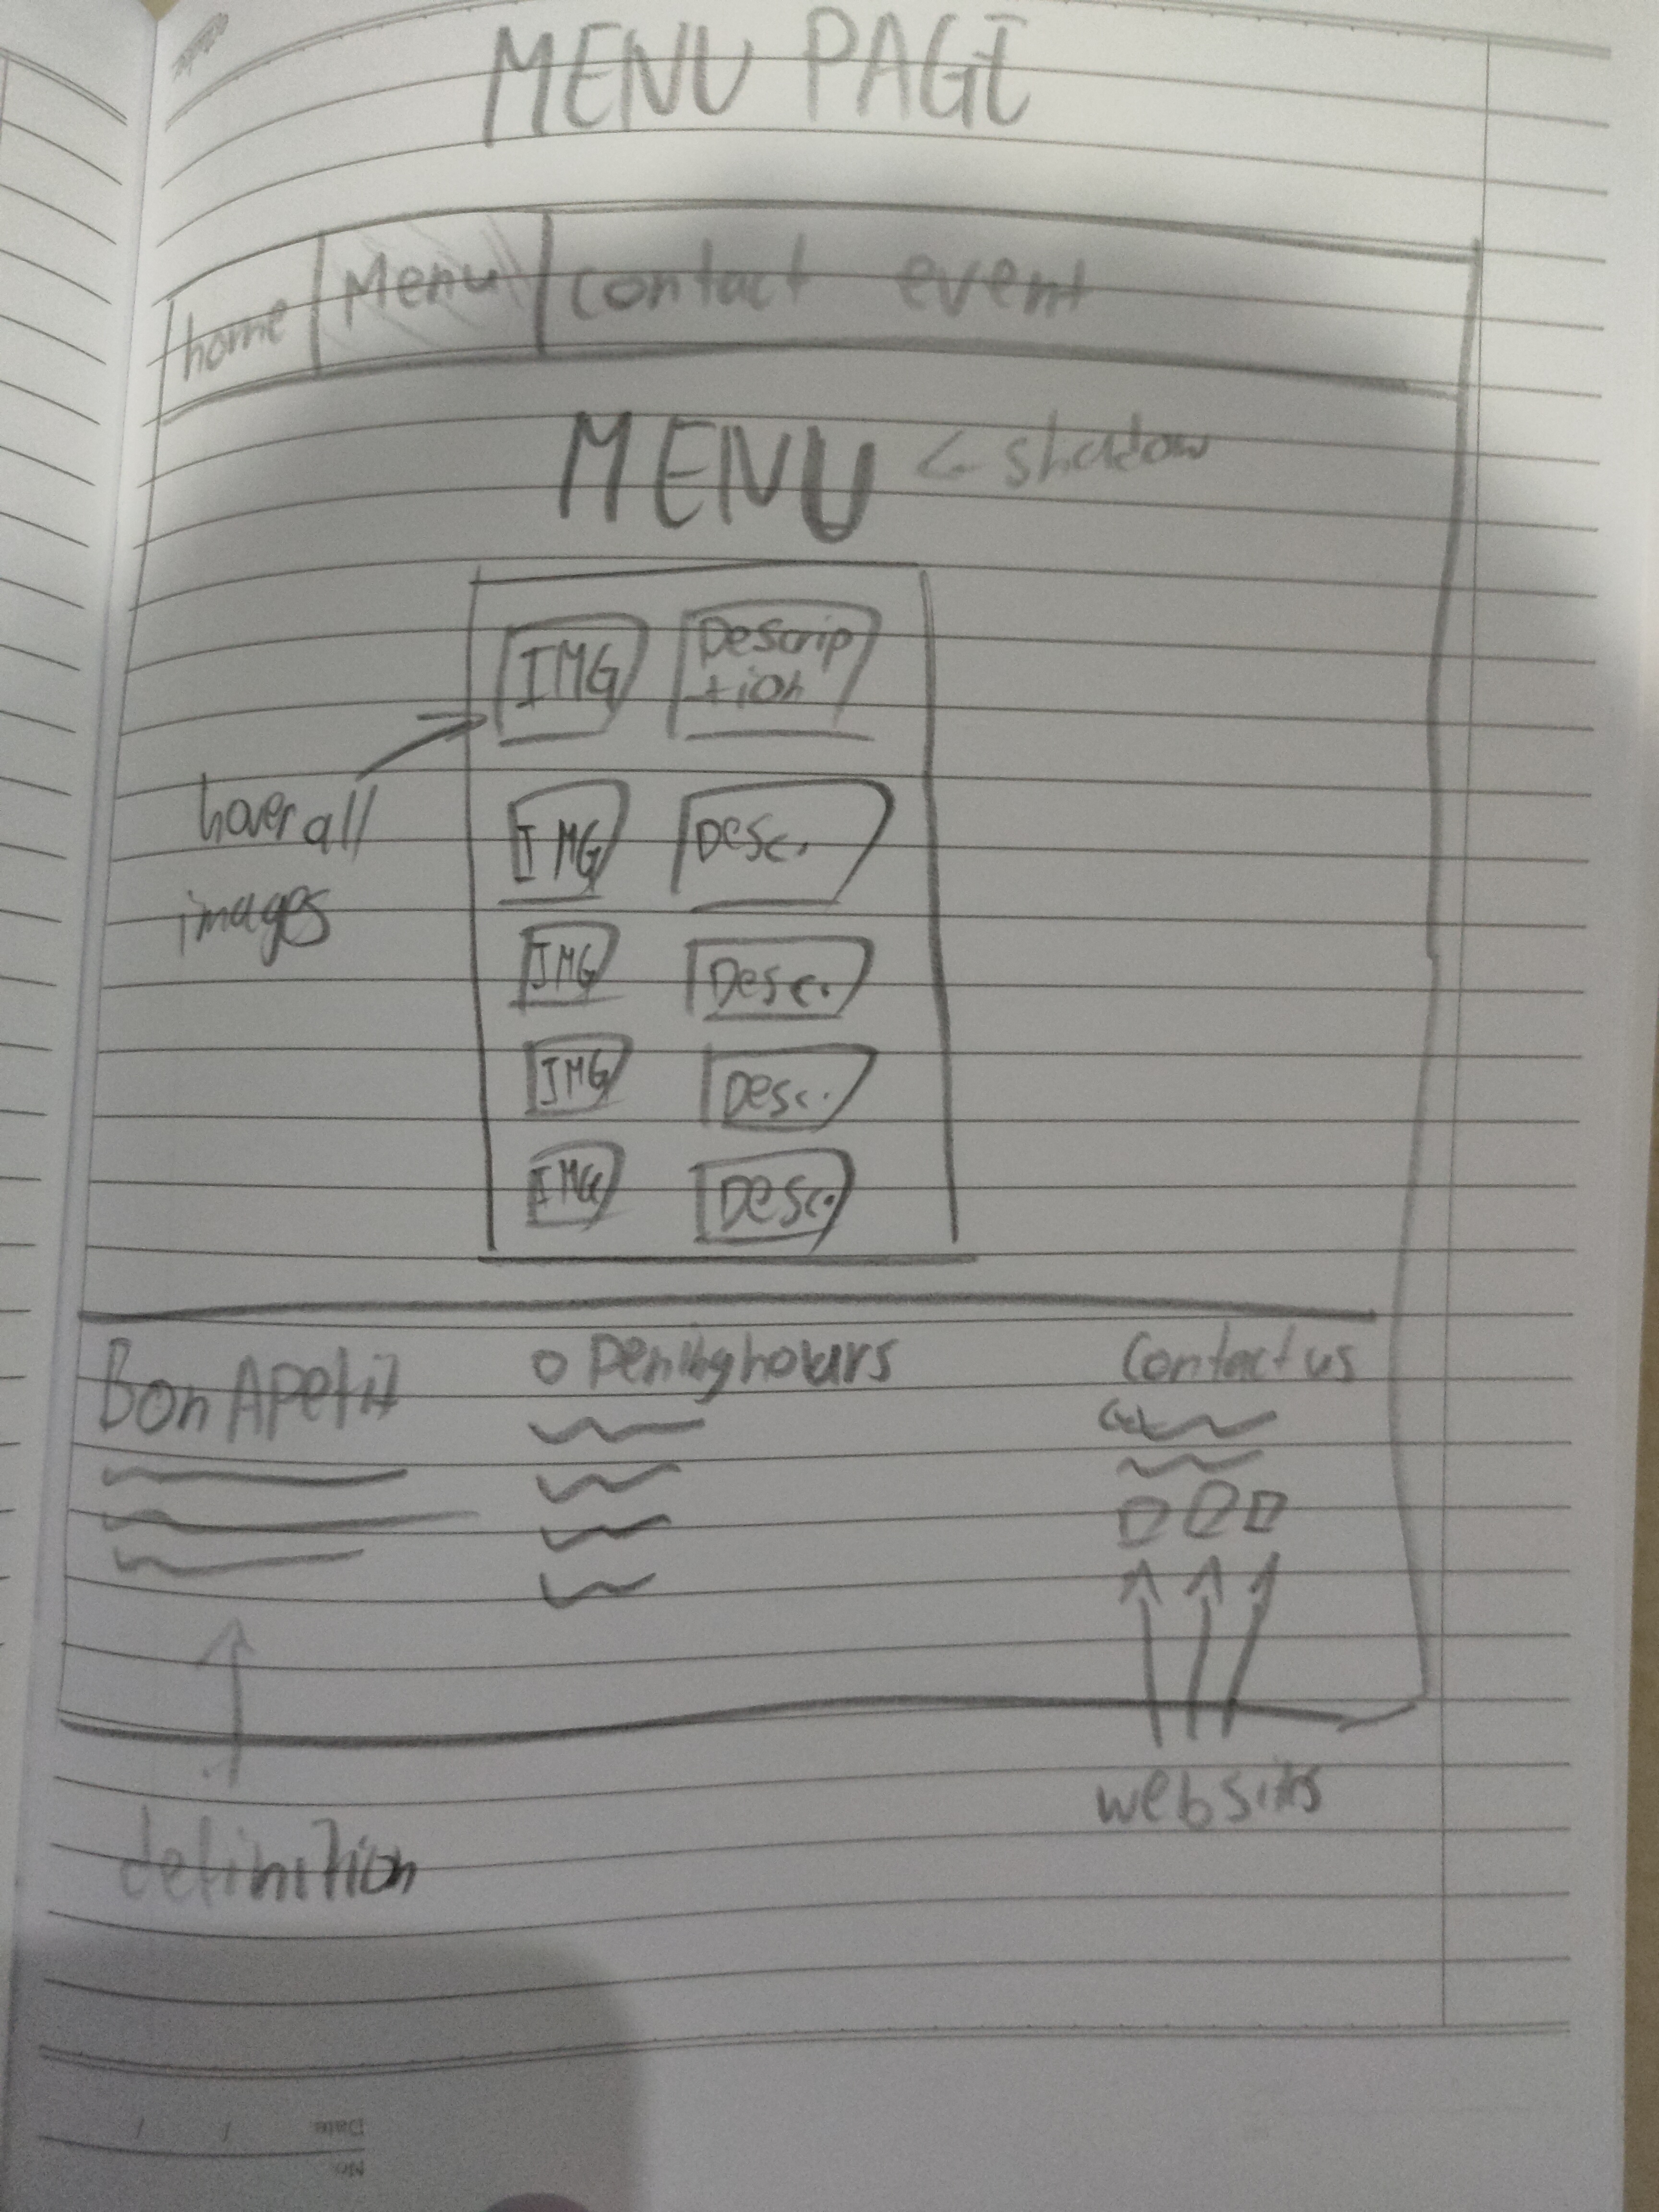 MENU PAGE
home Menu contact event
MENU ← shadow
IMG Descrip
-tion
hover all
images
IMG Desc.
IMG Desc.
IMG Desc.
IMG Desc.
Bon APetit Opening hours Contact us
definition
websits
Date
No.